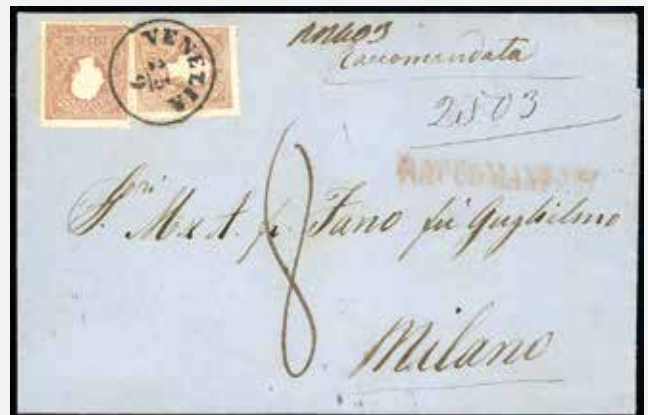 VENEZIA
Raccomandata
2503
RACCOMANDATA
Sri. M. e A. fr. Fano fu Guglielmo
8
Milano